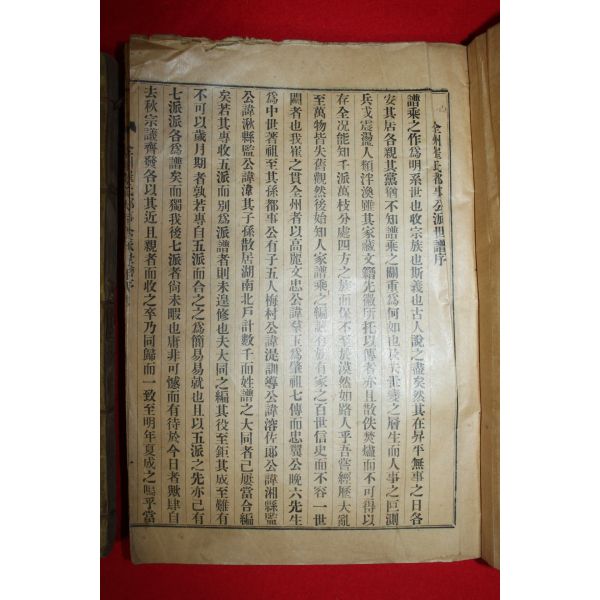 全州崔氏都事公派世譜序
譜乘之作爲明系世也收宗族也斯義也古人說之盡矣然其在昇平無事之日各
安其居各親其黨猶不知譜乘之關重爲何如也及夫世變之層生而人事之叵測
兵戈震盪人類泮渙雖其家藏文籍先徽所托以傳者亦且散佚焚燼而不可得以
存全况能知千派萬枝分處四方之族而保不至於漠然如路人乎吾嘗經歷大亂
至萬物皆失舊觀然後始知人家譜乘之編認有家之百世信史而不容一世
闕者也我崔之貫全州者以高麗文忠公諱羣玉爲肇祖七傳而忠翼公晚六先生
爲中世著祖至其孫都事公有子五人梅村公諱湜訓導公諱溶佐郎公諱湘縣監
公諱湫縣監公諱淮其子孫散居湖南北戶計數千而姓譜之大同者已屡當合編
矣若其專收五派而別爲派譜者則未遑修也夫大同之編其役至鉅其成至難有
不可以歲月期者孰若專自五派而合之之爲簡易易就也且以五派之先亦已有
七派派各爲譜矣而獨我後七派者尙未暇也庸非可憾而有待於今日者歟肆自
去秋宗議齊發各以其近且親者而收之卒乃同歸而一致至明年夏成之嗚乎當